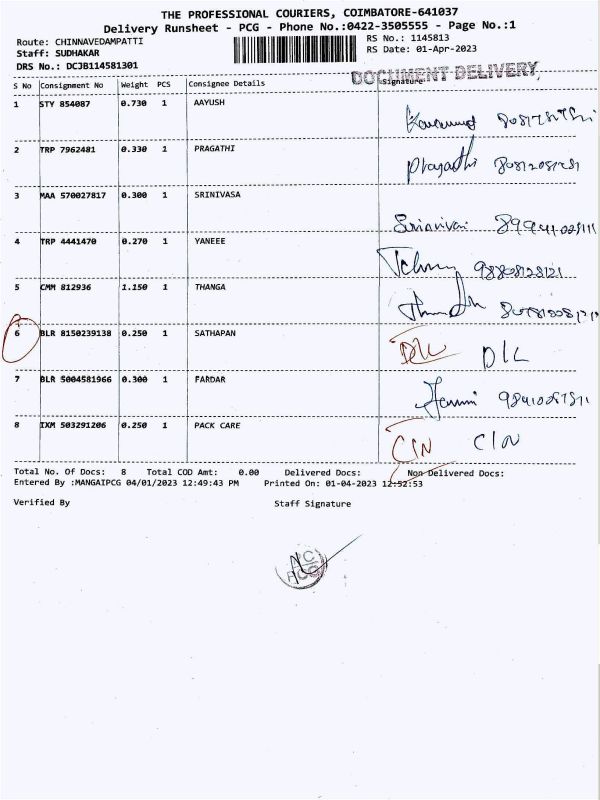 THE PROFESSIONAL COURIERS, COIMBATORE-641037
Delivery Runsheet - PCG - Phone No.:0422-3505555 - Page No.:1
Route: CHINNAVEDAMPATTI RS No.: 1145813
Staff: SUDHAKAR RS Date: 01-Apr-2023
DRS No.: DCJB114581301
DOCUMENT DELIVERY
S No Consignment No Weight PCS Consignee Details Signature
1 STY 854087 0.730 1 AAYUSH
2 TRP 7962481 0.330 1 PRAGATHI Pragathi
3 MAA 570027817 0.300 1 SRINIVASA
4 TRP 4441470 0.270 1 YANEEE
5 CMM 812936 1.150 1 THANGA
6 BLR 8150239138 0.250 1 SATHAPAN D/L D/L
7 BLR 5004581966 0.300 1 FARDAR
8 IXM 503291206 0.250 1 PACK CARE C/N C/N
Total No. Of Docs: 8 Total COD Amt: 0.00 Delivered Docs: Non Delivered Docs:
Entered By :MANGAIPCG 04/01/2023 12:49:43 PM Printed On: 01-04-2023 12:52:53
Verified By Staff Signature